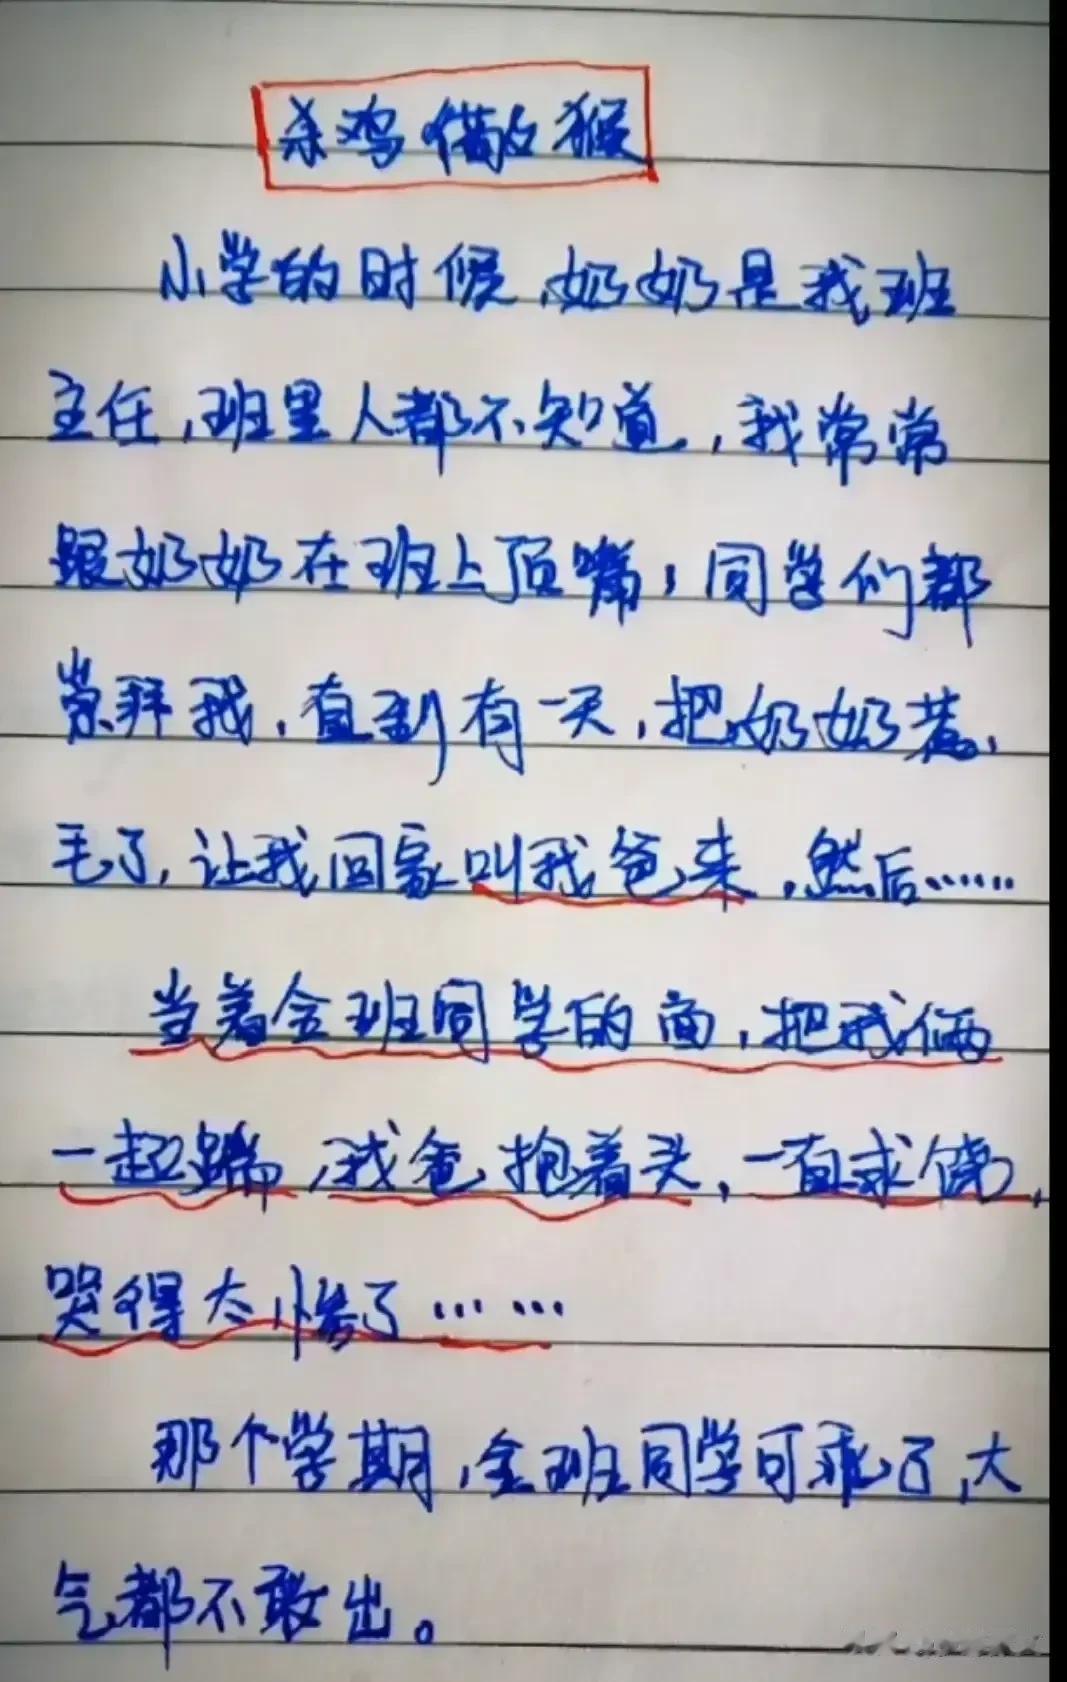 杀鸡儆猴
小学的时候,奶奶是我班
主任,班里人都不知道,我常常
跟奶奶在班上顶嘴,同学们都
崇拜我,直到有一天,把奶奶惹
毛了,让我回家叫我爸来,然后……
当着全班同学的面,把我俩
一起踹,我爸抱着头,一直求饶,
哭得太惨了……
那个学期,全班同学可乖了,大
气都不敢出。